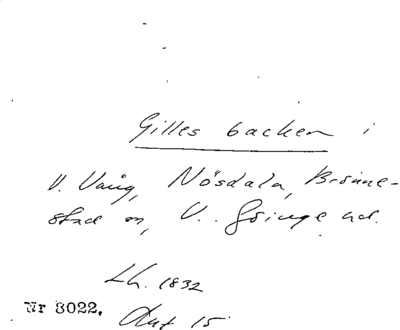 Gilles backen i
V. Vång, Nösdala, Brönne-
stad sn, V. Göinge hd.
Lh. 1832
Nr 3022. Akt 15